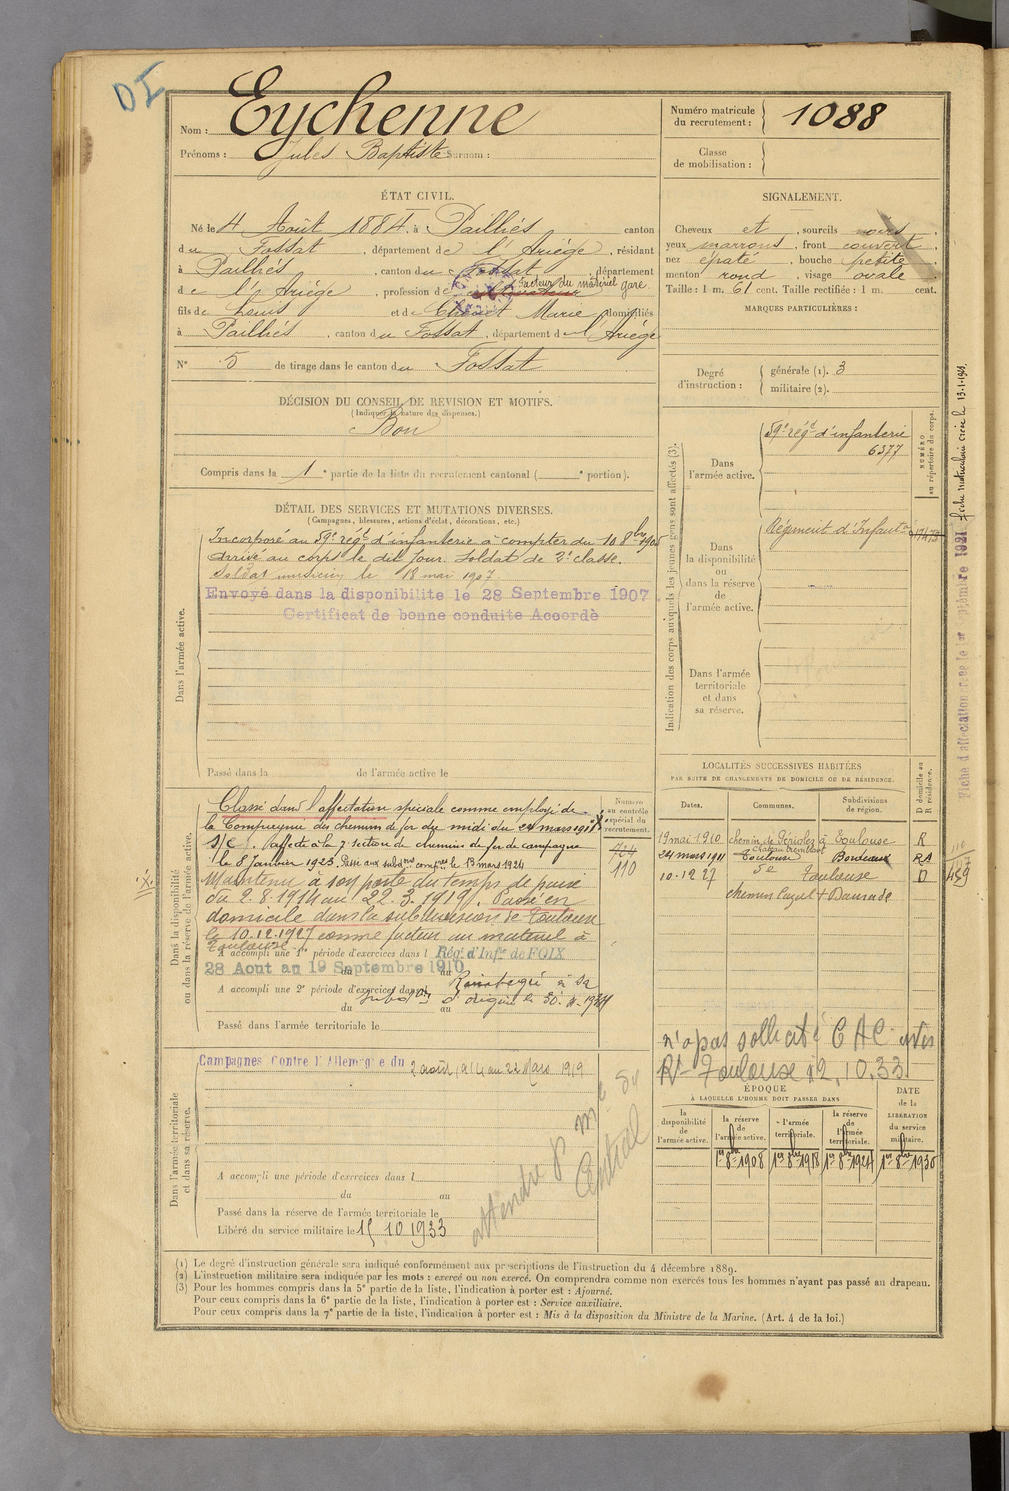 DI
Nom : Eychenne
Prénoms : Jules Baptiste Surnom :
Numéro matricule du recrutement : 1088
Classe de mobilisation :
ÉTAT CIVIL.
Né le 4 Août 1884. à Pailhès canton
du Fossat, département de l'Ariège, résidant
à Pailhès, canton du Fossat, département
de l'Ariège, profession de cultivateur facteur du matériel gare
fils de Louis et de Marie domiciliés
à Pailhès, canton du Fossat, département de l'Ariège
N° 5 de tirage dans le canton du Fossat
SIGNALEMENT.
Cheveux et, sourcils noirs,
yeux marrons, front couvert,
nez épaté, bouche petite,
menton rond, visage ovale
Taille : 1 m. 61 cent. Taille rectifiée : 1 m. cent.
MARQUES PARTICULIÈRES :
Degré d'instruction : générale (1). 3
militaire (2).
DÉCISION DU CONSEIL DE REVISION ET MOTIFS.
(Indiquer la nature des dispenses.)
Bon
Compris dans la 1e partie de la liste du recrutement cantonal ( e portion).
DÉTAIL DES SERVICES ET MUTATIONS DIVERSES.
(Campagnes, blessures, actions d'éclat, décorations, etc.)
Dans l'armée active.
Incorporé au 59e régt d'infanterie à compter du 10 8bre 1905
arrivé au corps le dit jour. Soldat de 2e classe.
Soldat musicien le 18 mai 1907.
Envoyé dans la disponibilite le 28 Septembre 1907
Certificat de bonne conduite Accordè
Passé dans la de l'armée active le
Indication des corps auxquels les jeunes gens sont affectés (3).
NUMÉRO au répertoire du corps.
Dans l'armée active.
59e régt d'infanterie
6377
Dans la disponibilité ou dans la réserve de l'armée active.
Régiment d'Infantie
Dans l'armée territoriale et dans sa réserve.
fiche matriculaire créée le 13-1-1923
Fiche d'affectation créée le 1er septembre 1921
Dans la disponibilité ou dans la réserve de l'armée active.
Numéro au contrôle spécial du recrutement.
Classé dans l'affectation spéciale comme employé de
la Compagnie des chemin de fer du midi du 24 mars 1911
S/C. Affecté à la 7e section de chemin de fer de campagne
le 8 Janvier 1923. Passé aux subdons complres le 13 mars 1924
Maintenu à son poste du temps de paix
du 2.8.1914 au 22.3.1919. Passé en
domicile dans la subdivision de Toulouse
le 10.12.1927 comme facteur au matériel à
Toulouse
724
110
A accompli une 1re période d'exercices dans l Rég. d'Infie de FOIX
28 Aout au 19 Septembre 1910
du au
A accompli une 2e période d'exercices dans l
du au
subdon d'origine le
Passé dans l'armée territoriale le
LOCALITÉS SUCCESSIVES HABITÉES
PAR SUITE DE CHANGEMENTS DE DOMICILE OU DE RÉSIDENCE.
Dates. Communes. Subdivisions de région. D domicile ou R résidence.
19 mai 1910 chemin de à Toulouse R
24 mars 1911 Toulouse Bordeaux RA
10.12 27 Toulouse D
459
n'a pas sollicité CAC avis
Rt Toulouse 12.10.33
Dans l'armée territoriale et dans sa réserve.
Campagnes Contre l'Allemagne du 2 août 1914 au 22 Mars 1919
A accompli une période d'exercices dans l
du au
Passé dans la réserve de l'armée territoriale le
Libéré du service militaire le 15 10 1933
attendre
Central
ÉPOQUE
À LAQUELLE L'HOMME DOIT PASSER DANS
DATE de la LIBÉRATION du service militaire.
la disponibilité de l'armée active.
la réserve de l'armée active.
l'armée territoriale.
la réserve de l'armée territoriale.
1er 8bre 1908 1er 8bre 1918 1er 8bre 1924 1er 8bre 1930
(1) Le degré d'instruction générale sera indiqué conformément aux prescriptions de l'instruction du 4 décembre 1889.
(2) L'instruction militaire sera indiquée par les mots : exercé ou non exercé. On comprendra comme non exercés tous les hommes n'ayant pas passé au drapeau.
(3) Pour les hommes compris dans la 5e partie de la liste, l'indication à porter est : Ajourné.
Pour ceux compris dans la 6e partie de la liste, l'indication à porter est : Service auxiliaire.
Pour ceux compris dans la 7e partie de la liste, l'indication à porter est : Mis à la disposition du Ministre de la Marine. (Art. 4 de la loi.)